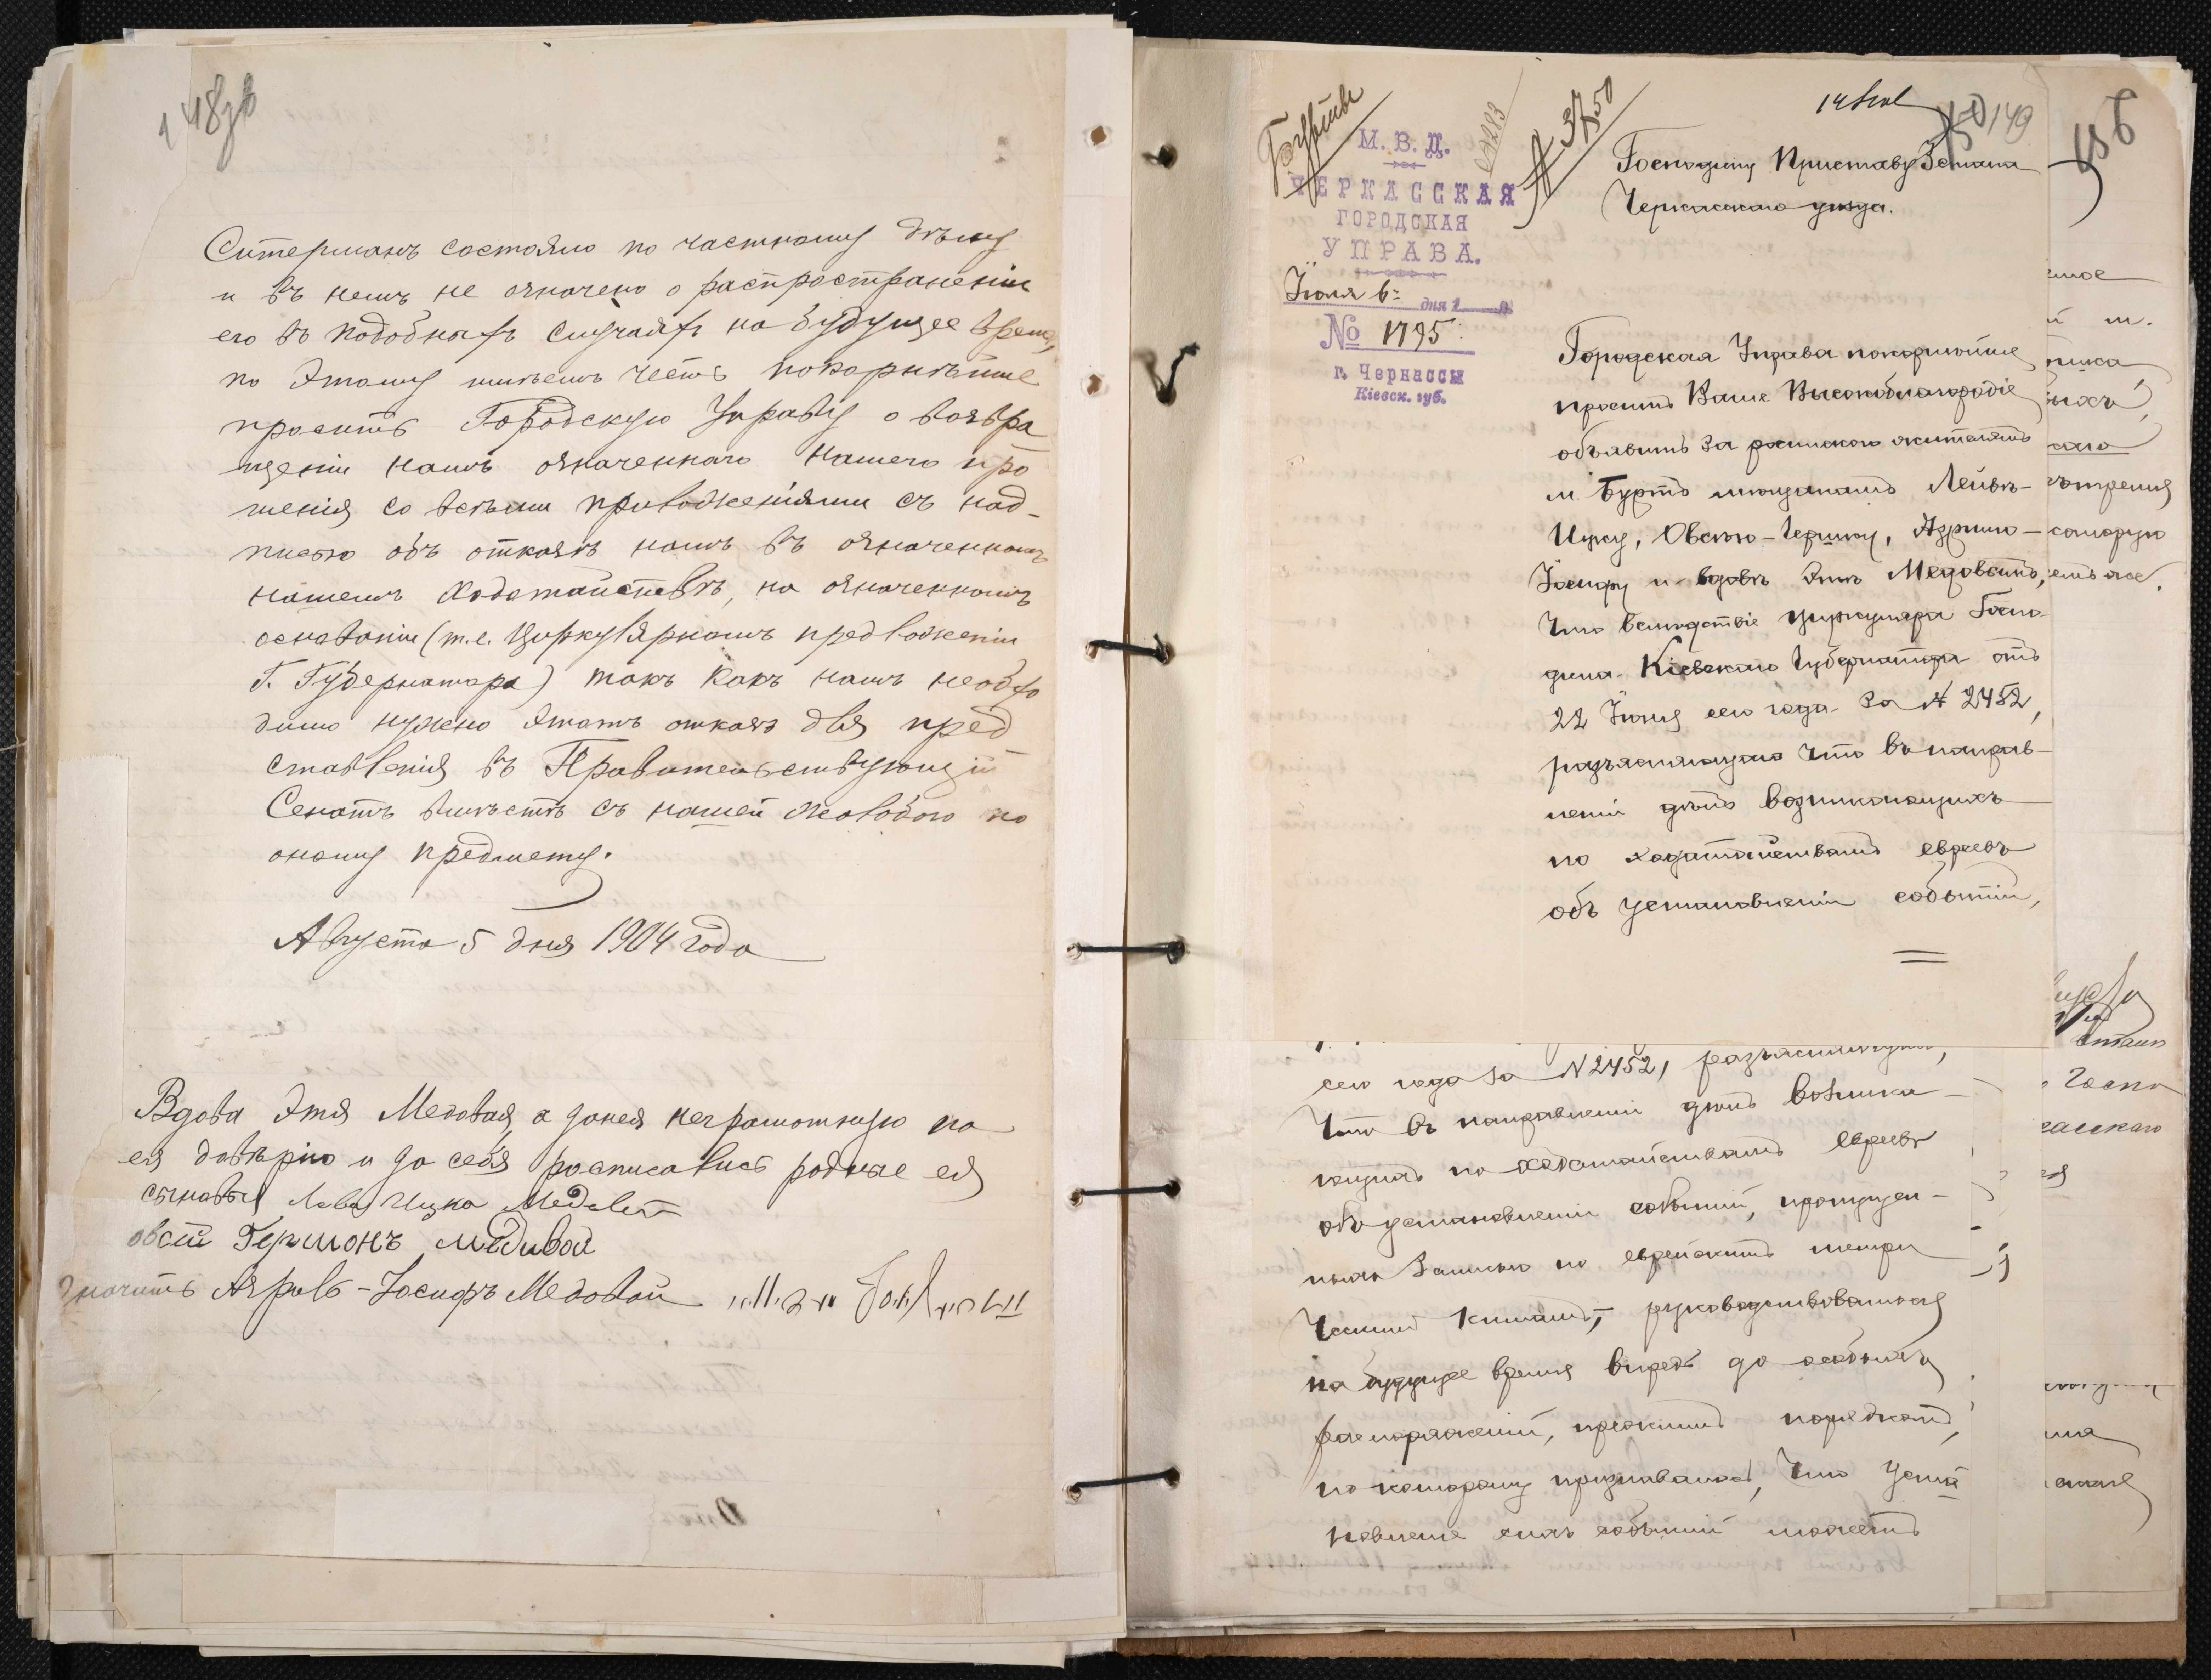 148об
Ситерманъ состояло по частному дѣлу
и въ немъ не означено о распространеніи
его въ подобныхъ случаяхъ на будущее время,
по этому имѣемъ честь покорнѣйше
просить Городскую Управу о возвра
щеніи намъ означеннаго нашего про
шенія со всѣми приложеніями съ над-
писью объ отказѣ намъ въ означенномъ
нашемъ ходатайствѣ, на означенномъ
основаніи (т.е. Циркулярномъ предложеніи
Г. Губернатора) такъ какъ намъ необхо
димо нужно этотъ отказъ для пред
ставленія въ Правительствующій
Сенатъ вмѣстѣ съ нашей жалобою по
оному предмету.
Августа 5 дня 1904 года
Вдова Этя Медовая, а за нея неграмотную по
ея довѣрію и за себя росписались родные ея
сыновья Лейба Ицко Медовой
Овсій Гершонъ Медовой
Азрилъ-Іосифъ Медовой
№ 3750
149
М. В. Д.
ЧЕРКАССКАЯ
ГОРОДСКАЯ
УПРАВА.
Іюля 6 дня
№ 1795
г. Черкассы
Кіевск. губ.
Господину Приставу 3 стана
Черкасскаго уѣзда.
Городская Управа покорнѣйше
проситъ Ваше Высокоблагородіе
объявить за роспискою жителямъ
м. Буртъ мѣщанамъ Лейбѣ-
Ицку, Овсѣю-Гершку, Азрилю-
Іосифу и вдовѣ Этѣ Медовымъ,
что вслѣдствіе циркуляра Госпо-
дина Кіевскаго Губернатора отъ
22 Іюня сего года за № 2452,
разъясняющаго что въ направ-
леніи дѣлъ возникающихъ
по ходатайствамъ евреевъ
объ установленіи событій,
сего года за № 2452, разъясняющаго,
что въ направленіи дѣлъ возника-
ющихъ по ходатайствамъ евреевъ
объ установленіи событій, пропущен-
ныхъ записью по еврейскимъ метри
ческимъ книгамъ, руководствоваться
на будущее время впредь до особыхъ
распоряженій, прежнимъ порядкомъ,
по которому признавалось, что уста
новленіе сихъ событій можетъ